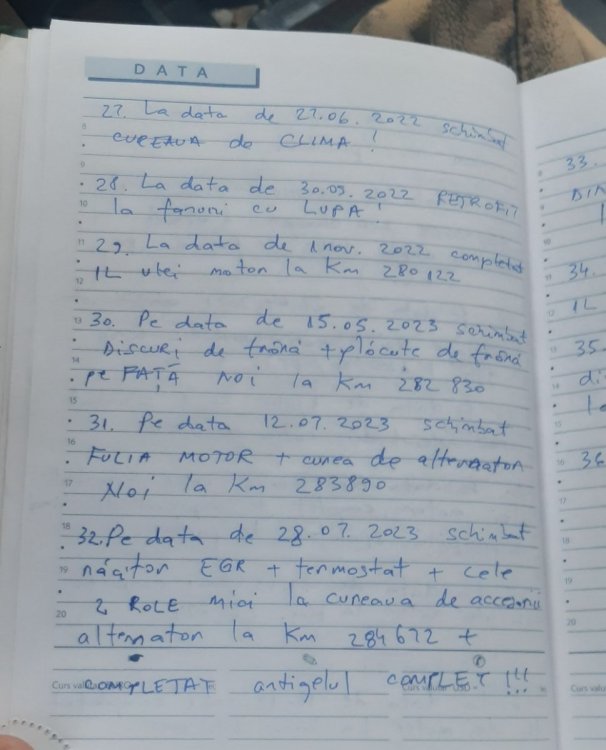 DATA
27. La data de 27.06.2022 schimbat
CUREAUA de CLIMA!
28. La data de 30.09.2022 RETROFIT
la faruri cu LUPA!
29. La data de 1 nov. 2022 completat
1L ulei motor la Km 280 122
30. Pe data de 15.05.2023 schimbat
DISCURI de frână + plăcuțe de frână
pe FAȚĂ NOI la Km 282 830
31. Pe data 12.07.2023 schimbat
FULIA MOTOR + curea de alternator
NOI la Km 283890
32. Pe data de 28.07.2023 schimbat
răcitor EGR + termostat + cele
2 ROLE mici la cureaua de accesorii
alternator la Km 284672 +
COMPLETAT antigelul COMPLET!!!
33.
34.
1L
35.
di
36